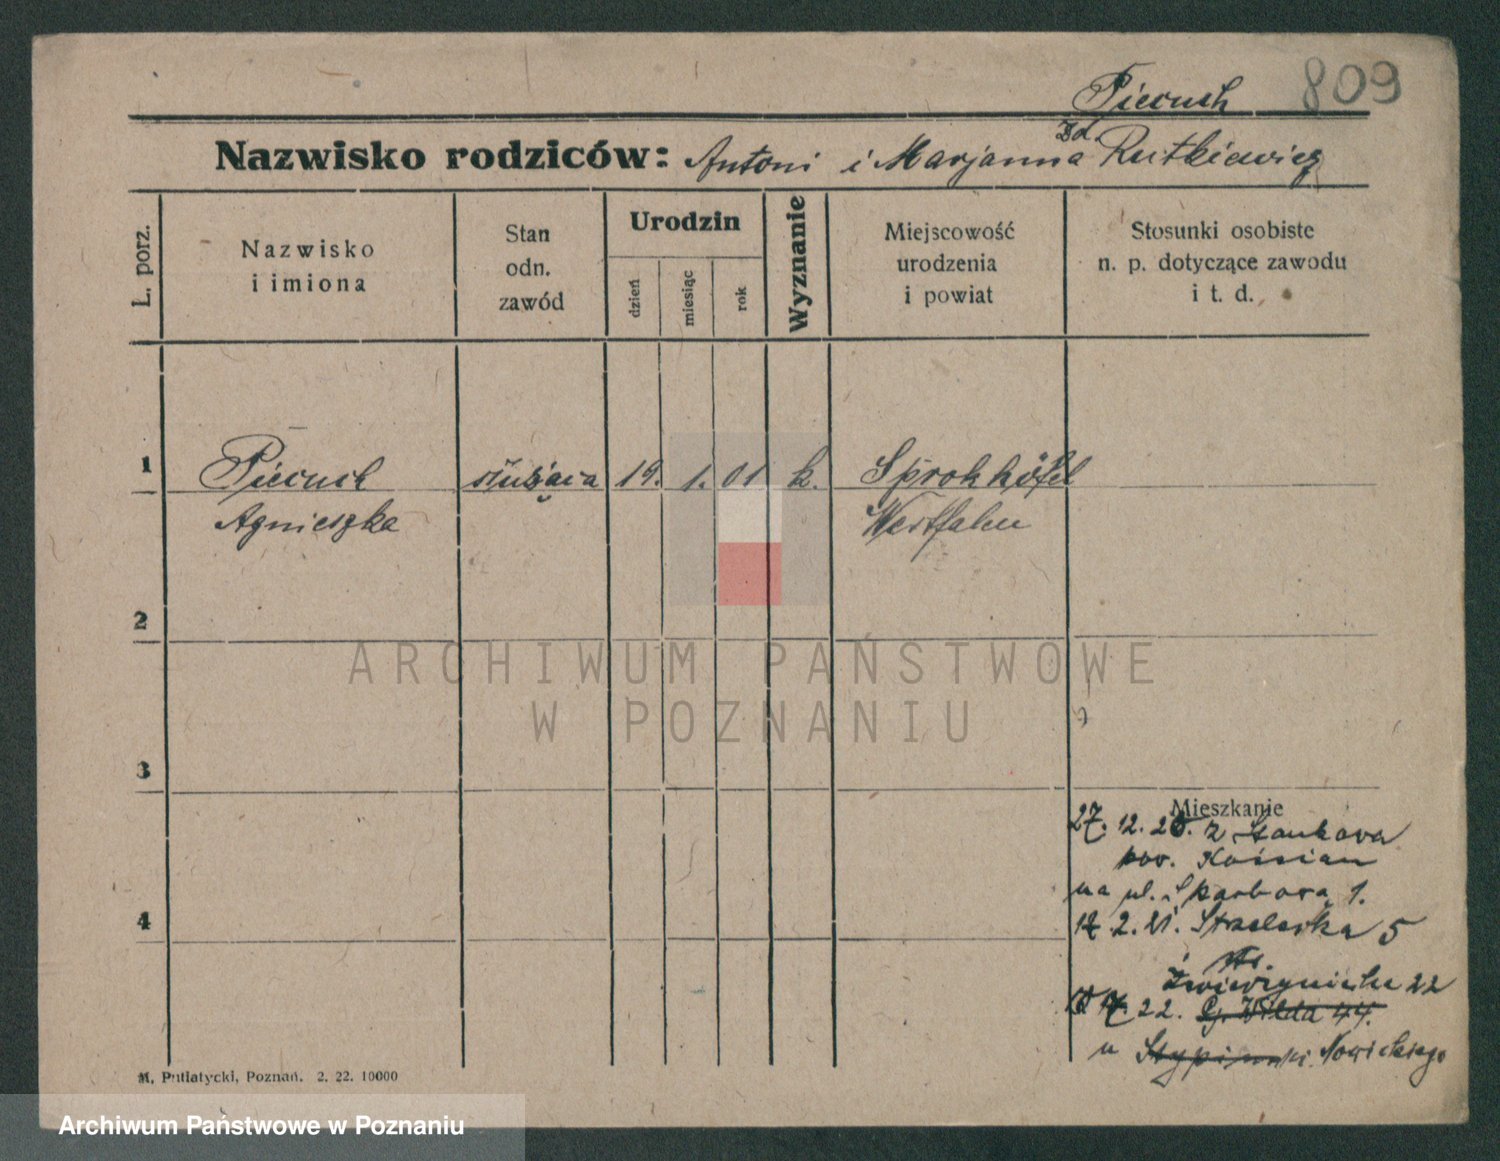 809
Piecuch
Nazwisko rodziców: Antoni i Marjanna zd. Rutkiewicz
L. porz.
Nazwisko
i imiona
Stan
odn.
zawód
Urodzin
dzień
miesiąc
rok
Wyznanie
Miejscowość
urodzenia
i powiat
Stosunki osobiste
n. p. dotyczące zawodu
i t. d.
1
Piecuch służąca 19. 1. 01 k. Sprokhöfel
Agnieszka Westfalen
2
ARCHIWUM PAŃSTWOWE
W POZNANIU
3
Mieszkanie
27. 12. 20. z
pow. Kościan
na ul. Skarbowa 1.
2. 21. Strzelecka 5
Zwierzyniecka 22
22. Wilda 44.
u Nowickiego
4
M. Putiatycki, Poznań. 2. 22. 10000
Archiwum Państwowe w Poznaniu